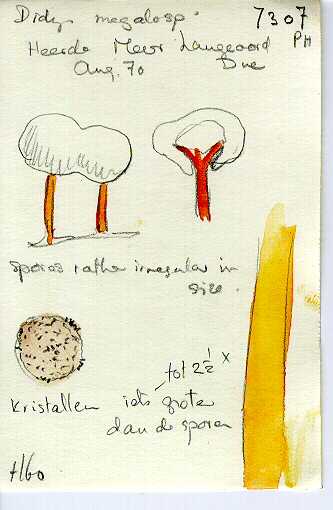 Didy. megalosp. 7307
PH
Heerde Meer Langeoord
Aug. 70
spores rather irregular in
size.
tot 2½ x
Kristallen iets groter
dan de sporen